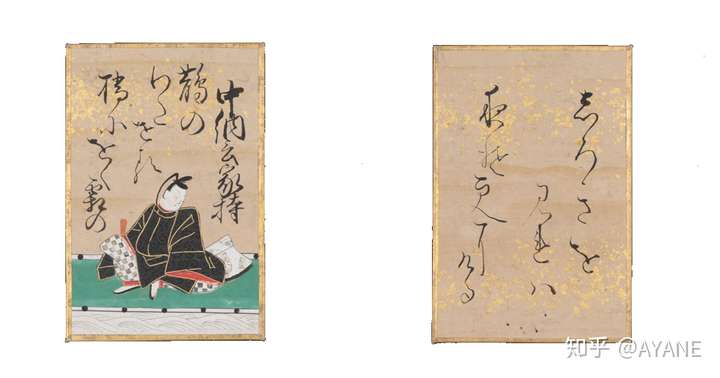 中納言家持
鵲の
わた
せる
橋に
をく
霜の
しろきを
見れハ
夜そ更に
ける
知乎 @AYANE